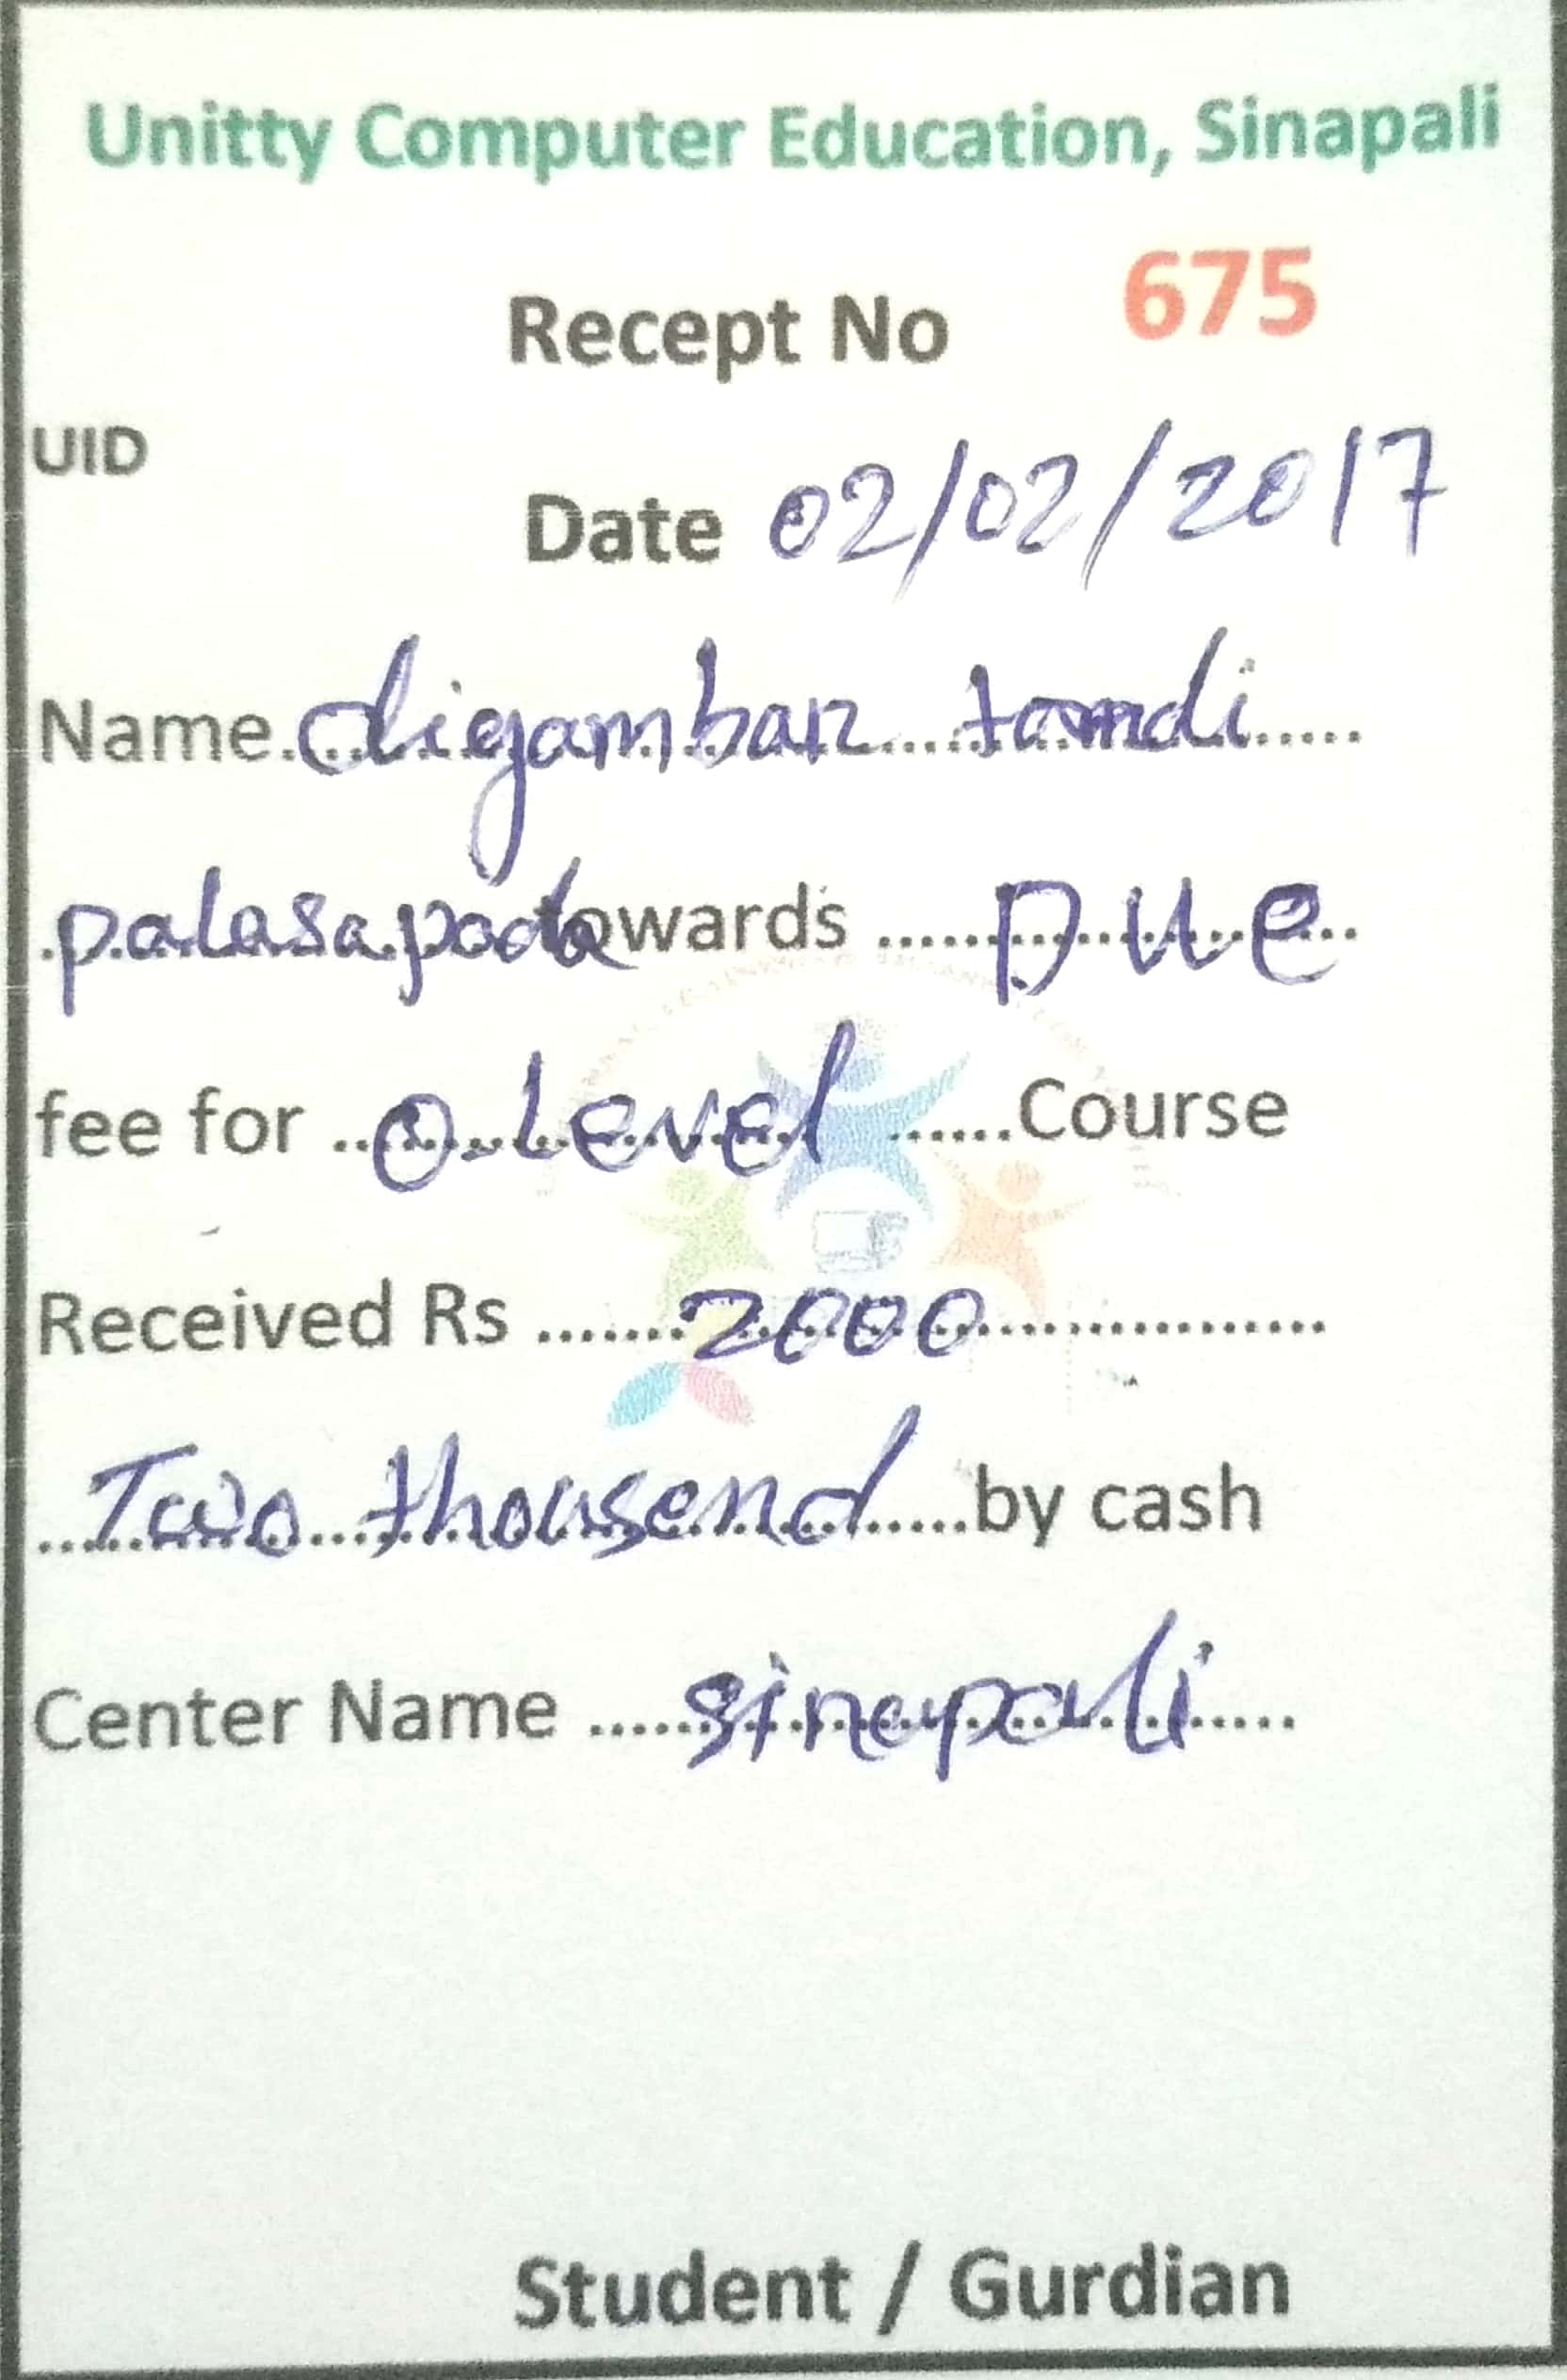 Unitty Computer Education, Sinapali
Recept No 675
UID
Date 02/02/2017
Name digambar tamdi
palasapada towards Due
fee for O Level Course
Received Rs 2000
Two thousend by cash
Center Name sinapali
Student / Gurdian